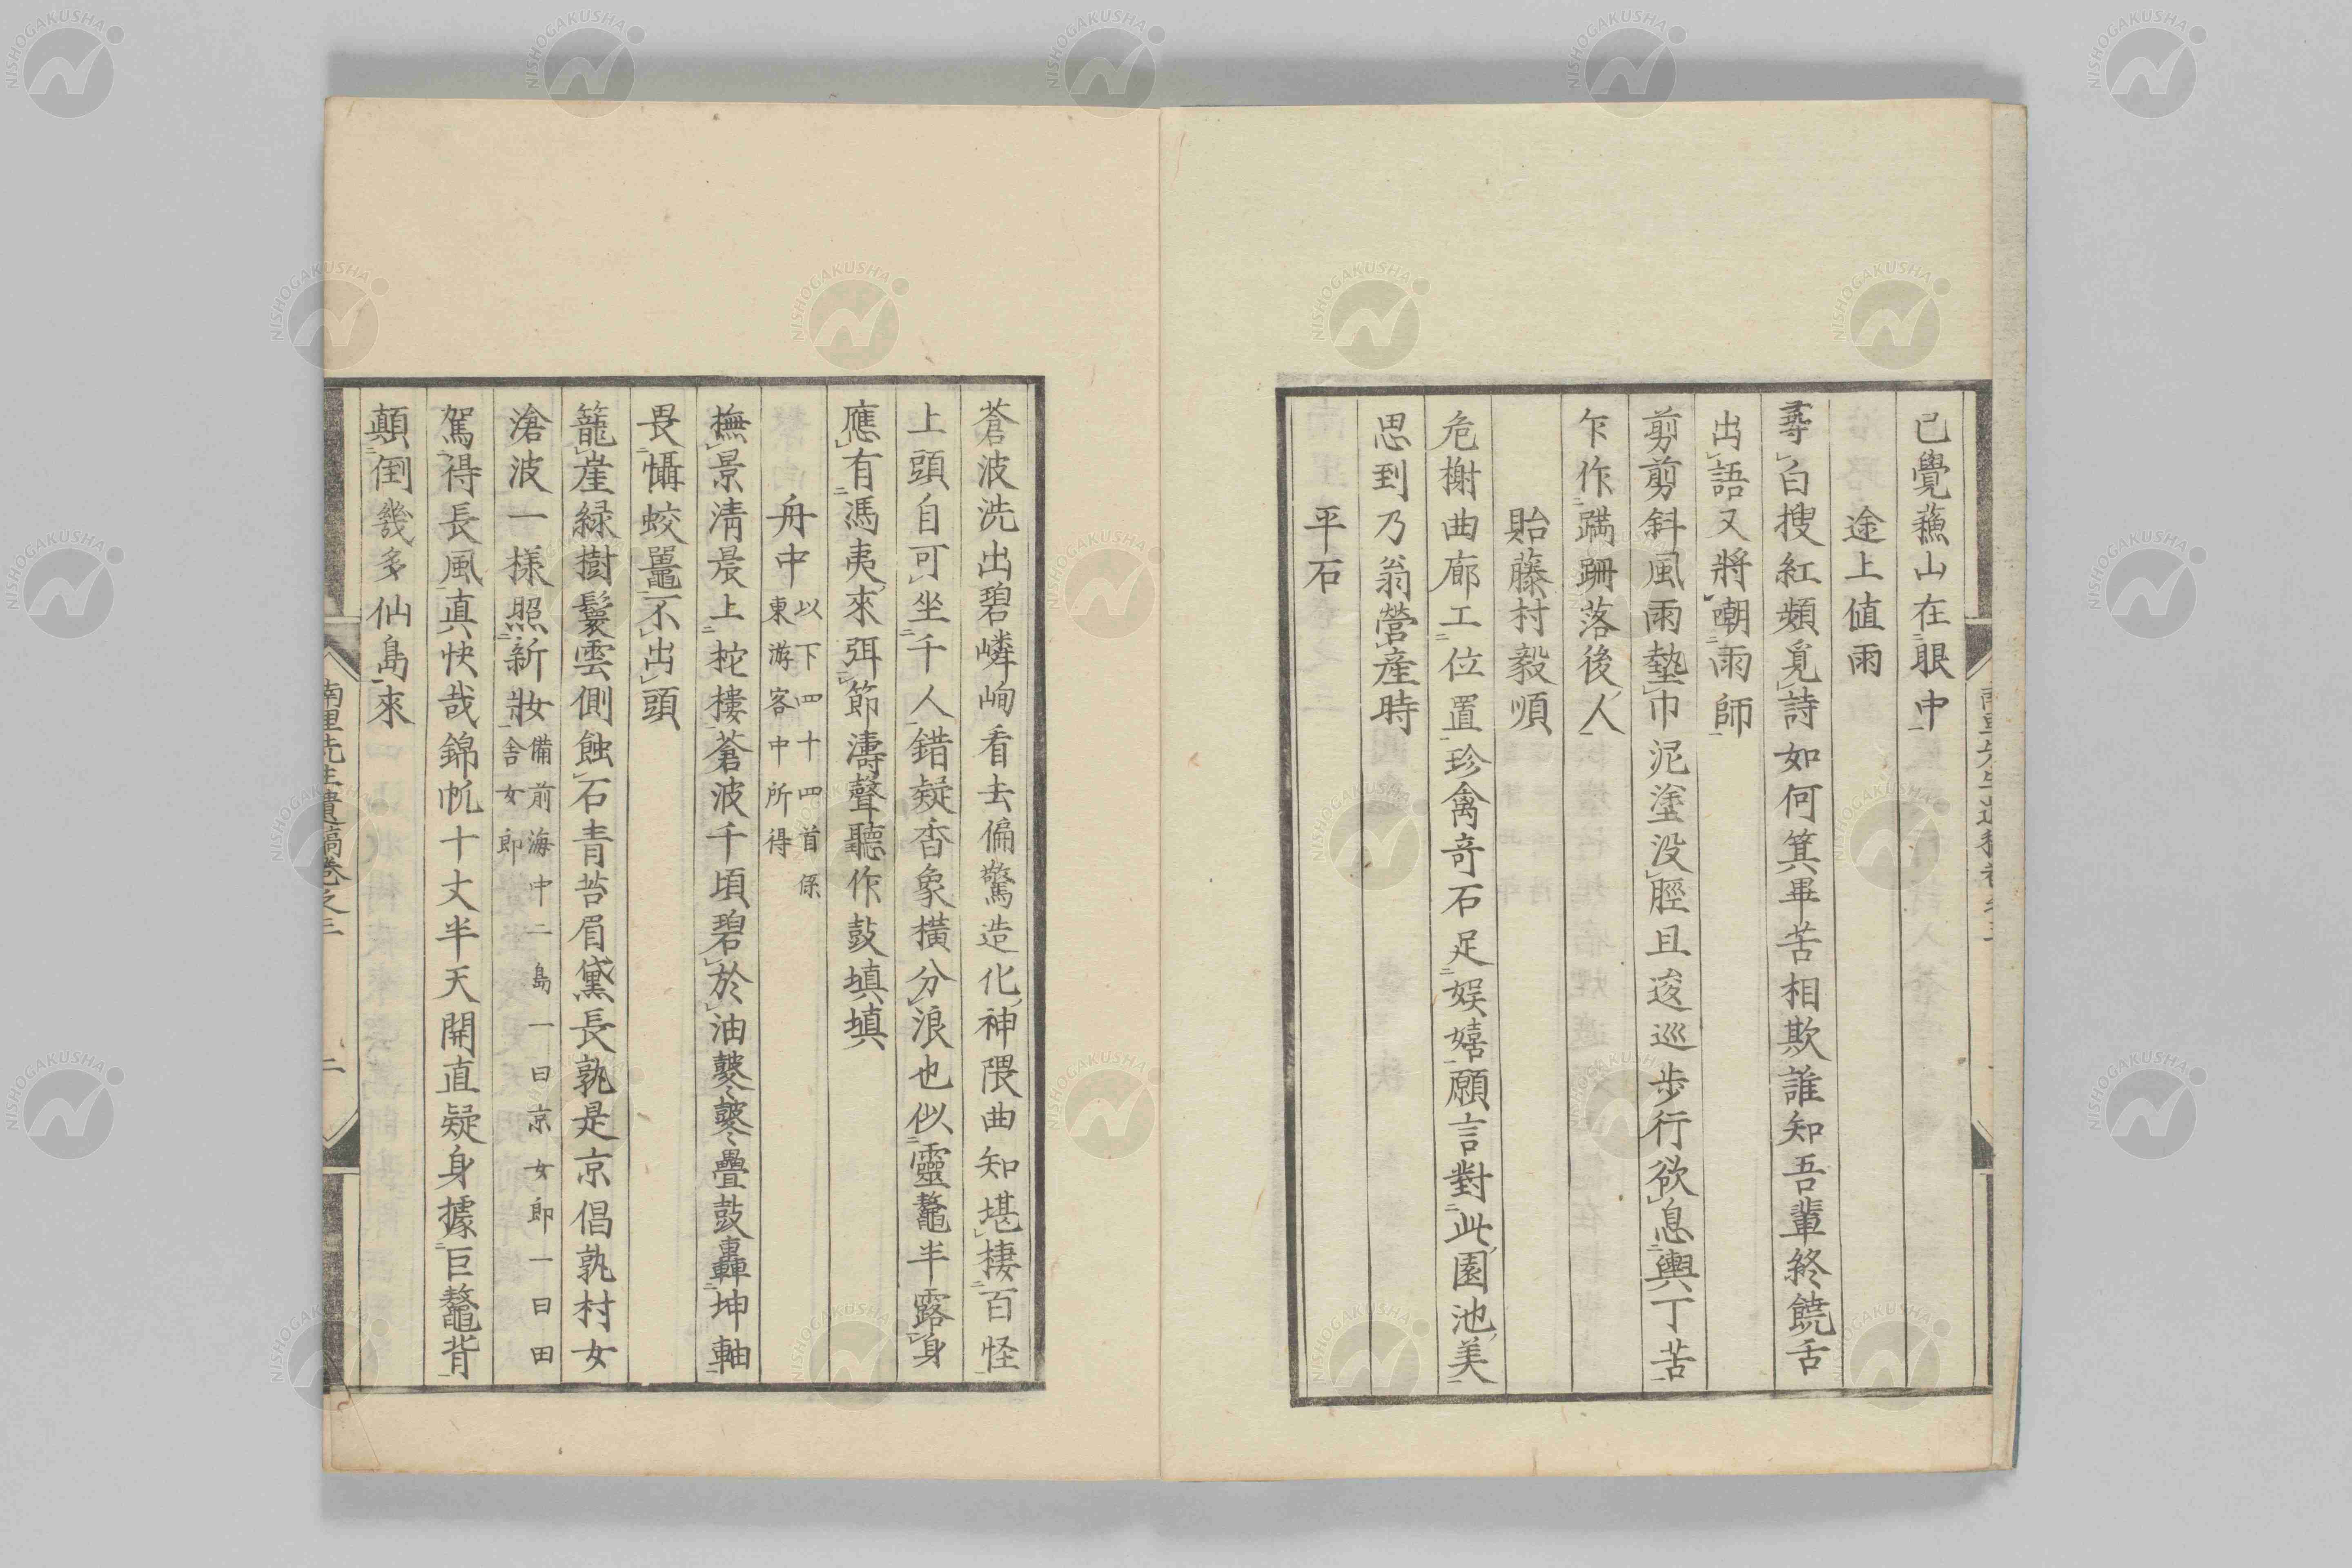 已覺蘓山在眼中
途上値雨
尋白搜紅頻覓詩如何箕畢苦相欺誰知吾輩終饒舌
出語又將嘲雨師
剪剪斜風雨墊巾泥塗没脛且逡巡步行欲息輿丁苦
乍作蹣跚落後人
貽藤村毅順
危榭曲廊工位置珍禽奇石足娯嬉願言對此園池美
思到乃翁營産時
平石
蒼波洗出碧嶙峋看去偏驚造化神隈曲知堪棲百怪
上頭自可坐千人錯疑香象横分浪也似靈鼇半露身
應有馮夷來弭節濤聲聽作鼓塡塡
舟中以下四十四首係
東游客中所得
撫景淸晨上柁樓蒼波千頃碧於油鼕鼕疊鼓轟坤軸
畏懾蛟鼉不出頭
籠崖緑樹鬟雲側蝕石青苔眉黛長孰是京倡孰村女
滄波一樣照新妝備前海中二島一曰京女郎一曰田
舎女郎
駕得長風真快哉錦帆十丈半天開直疑身據巨鼇背
顛倒幾多仙島來
南里先生遺稿卷之三
二
NISHOGAKUSHA